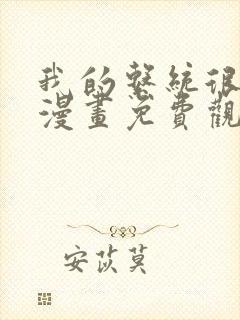 我的系統很
漫畫免費觀
安苡莫